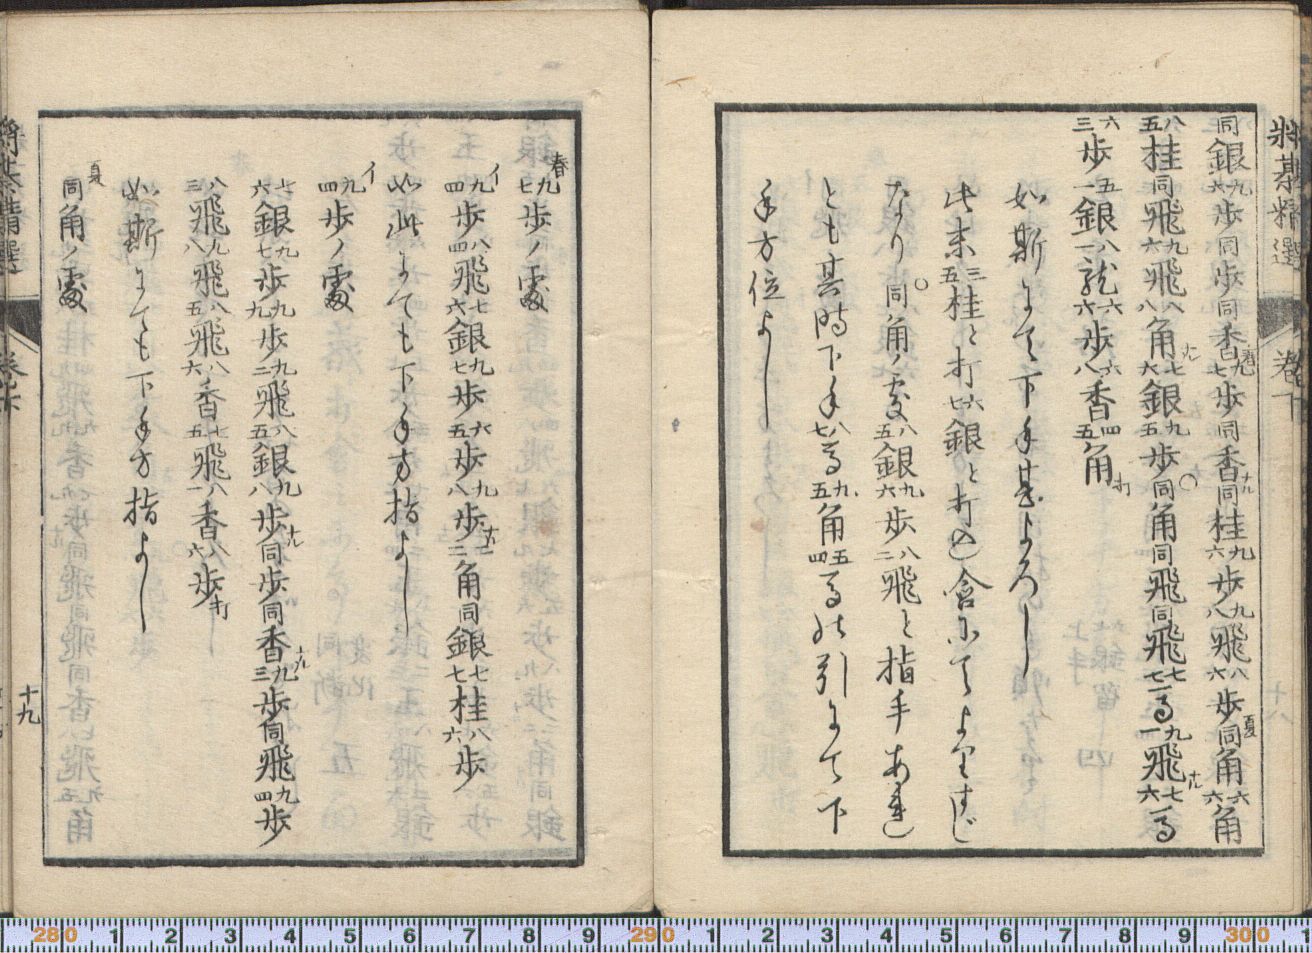 将棊精選 巻下
同銀九六歩同歩同香九七歩同香同桂九六歩九八飛八六歩同角六六角
八五桂同飛九六飛八八角七六銀九五歩同角同飛同飛七七馬九一飛七六馬
六三歩五一銀八一龍六六歩六八香四五角打
如斯にて下手甚よろし
此末三五桂と打六七銀と打
なり○同角ノ処八五銀九六歩八二飛と指手あれ
とも其時下手八七馬九五角五四馬引にて下
手方位よし
春九七歩ノ処
イ九四歩八四飛七六銀九七歩六五歩九八歩二角同銀七七桂八六歩
如此にても下手方指よし
イ九四歩ノ処
七六銀九七歩九九歩九二飛八五銀九八歩同歩同香九三歩同飛九四歩
八三飛九八飛八五飛八六香七五飛八一香八六歩打
如斯にても下手方指よし
夏同角ノ処
十九